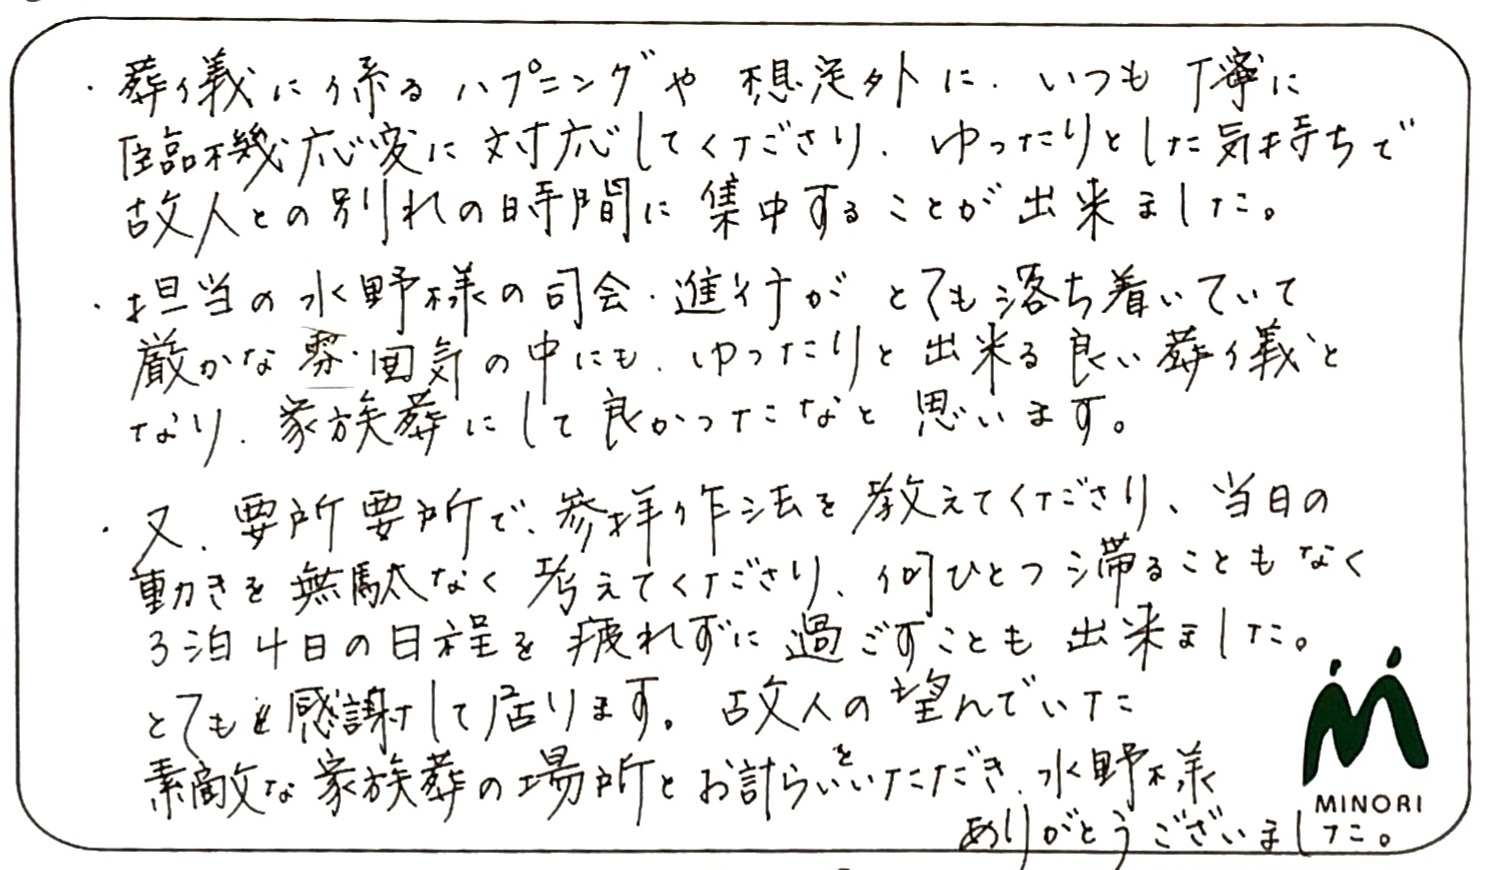 ・葬儀に係るハプニングや想定外に、いつも丁寧に
臨機応変に対応してくださり、ゆったりとした気持ちで
故人との別れの時間に集中することが出来ました。
・担当の水野様の司会・進行がとても落ち着いていて
厳かな雰囲気の中にも、ゆったりと出来る良い葬儀と
なり、家族葬にして良かったなと思います。
・又、要所要所で、参拝作法を教えてくださり、当日の
動きを無駄なく考えてくださり、何ひとつ滞ることもなく
3泊4日の日程を疲れずに過ごすことも出来ました。
とても感謝して居ります。故人の望んでいた
素敵な家族葬の場所とお計らいをいただき、水野様
ありがとうございました。
MINORI